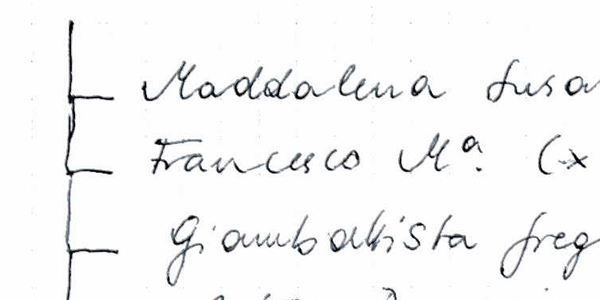 Maddalena Susa
Francesco Mª. (x
Giambattista freg